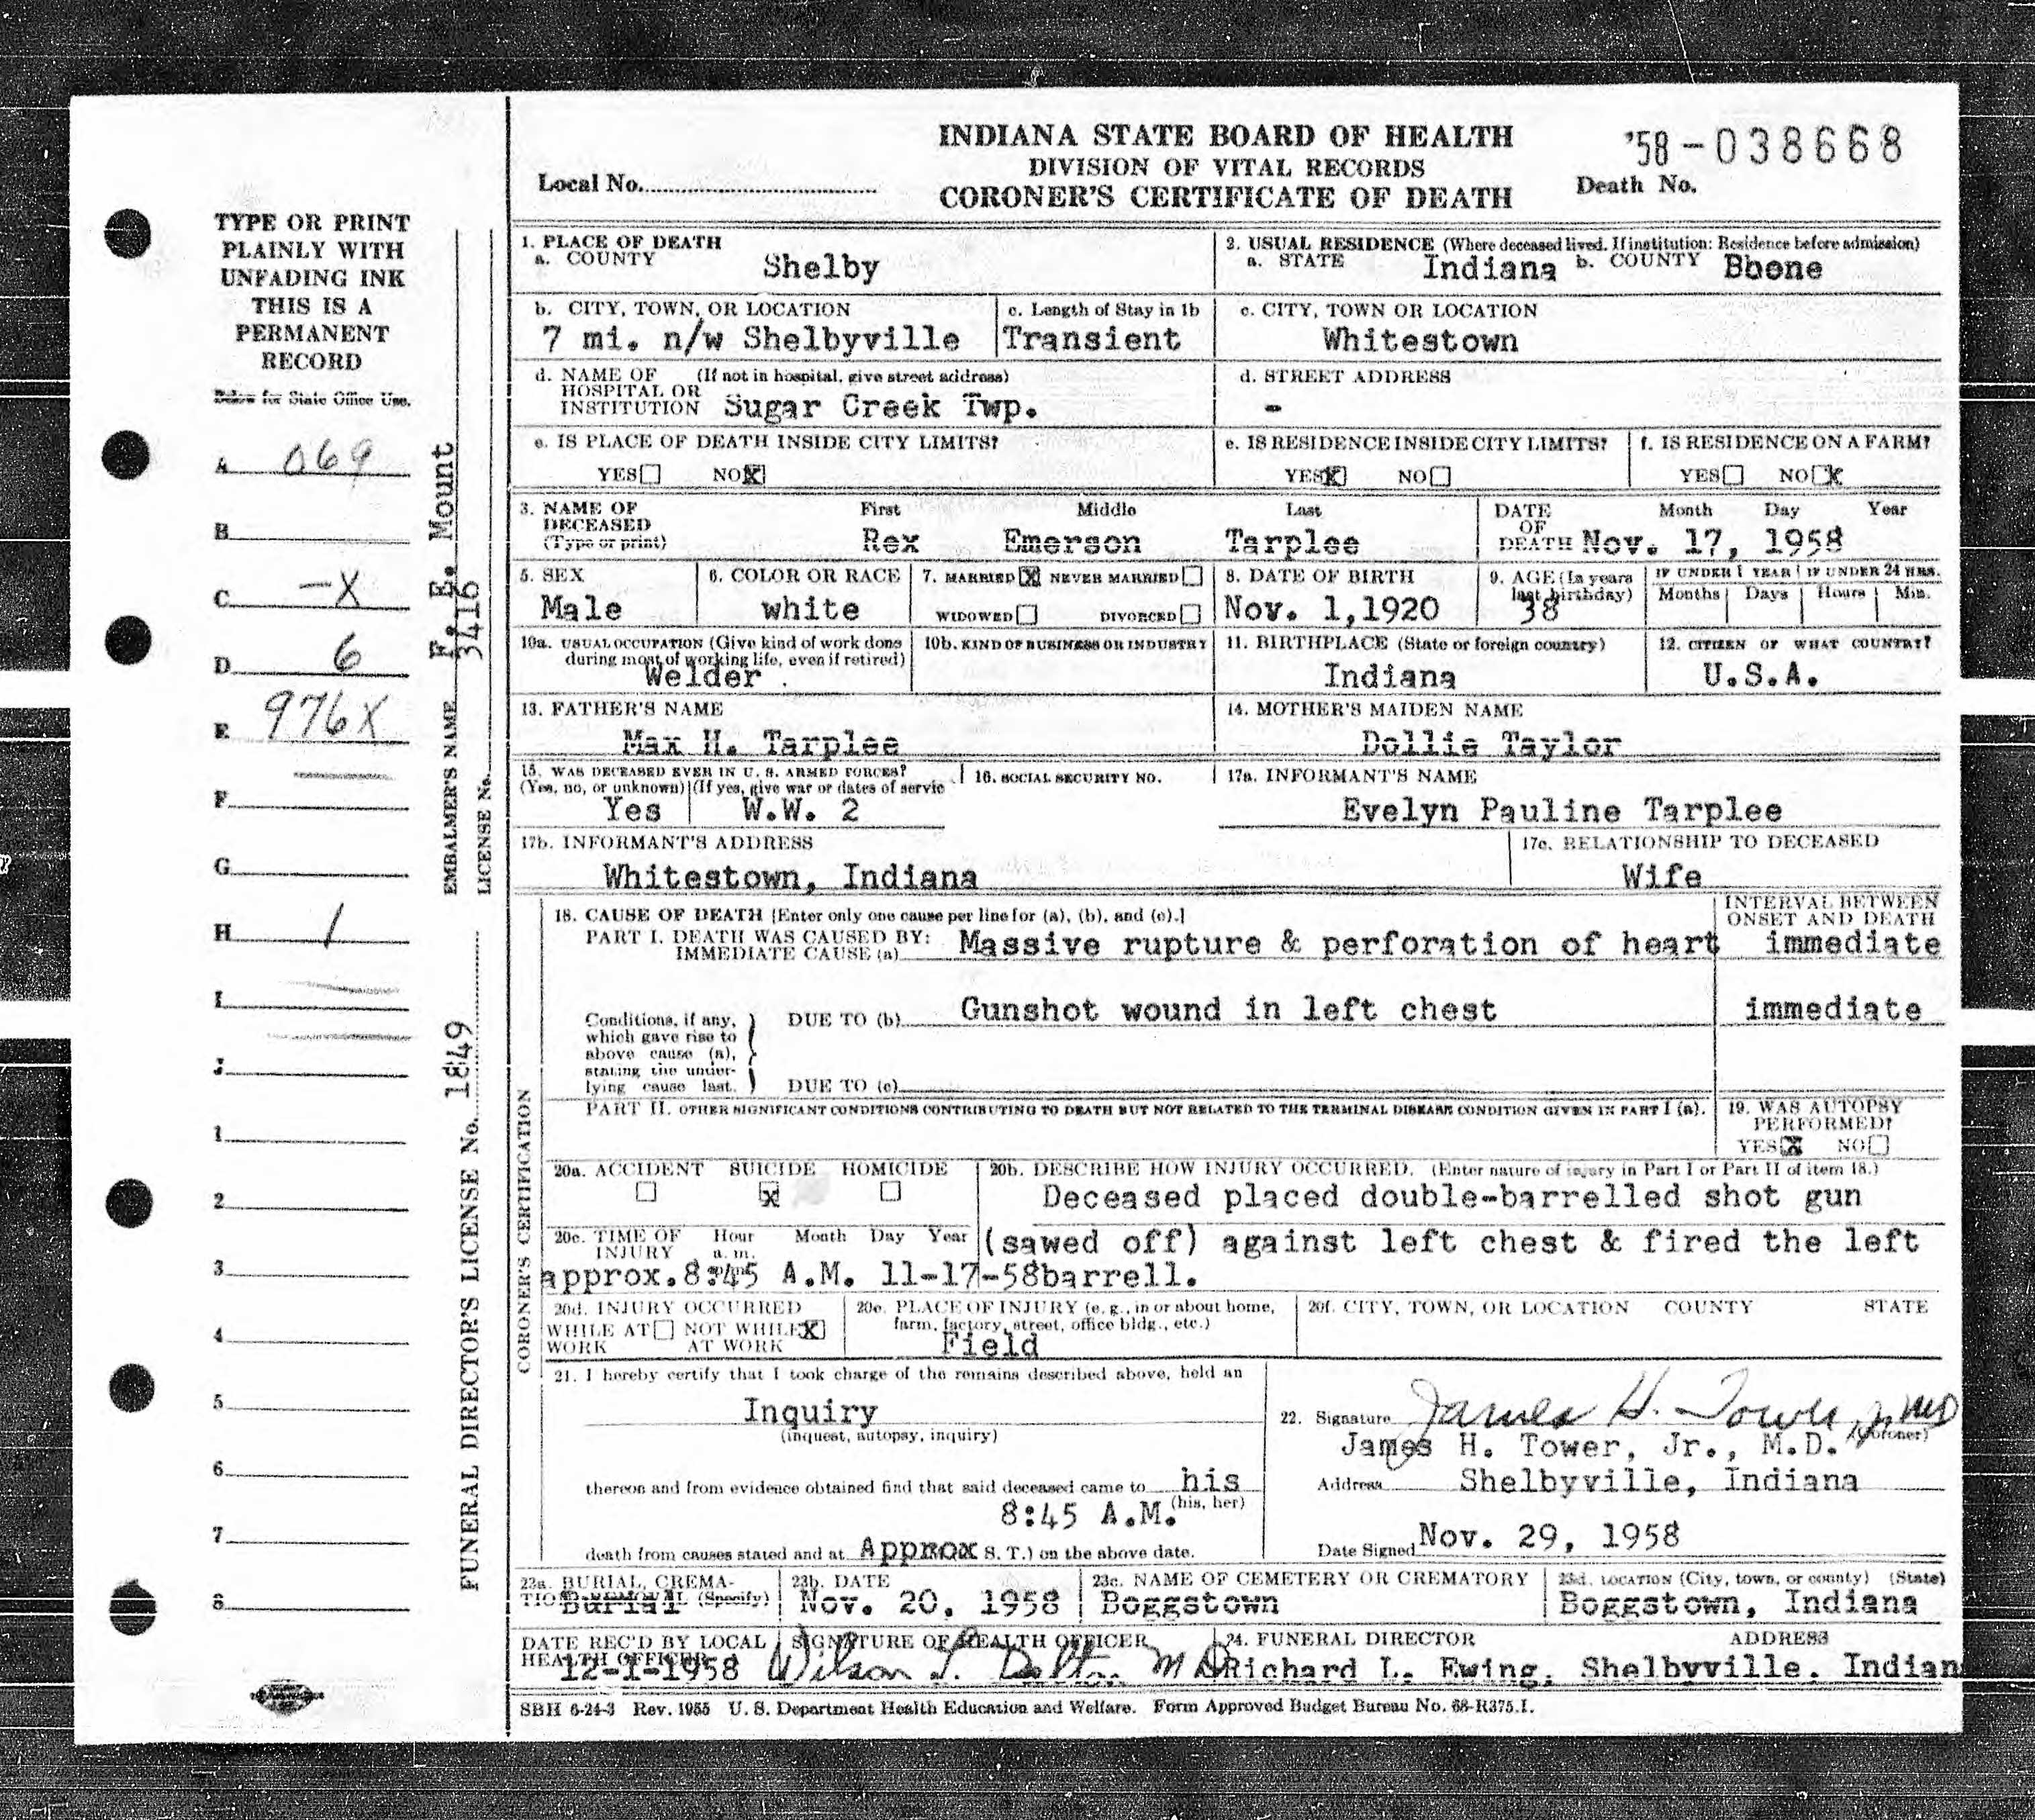 INDIANA STATE BOARD OF HEALTH
DIVISION OF VITAL RECORDS
CORONER'S CERTIFICATE OF DEATH
Local No.
'58-038668
Death No.
TYPE OR PRINT
PLAINLY WITH
UNFADING INK
THIS IS A
PERMANENT
RECORD
Below for State Office Use.
A 069
B
C -X
D 6
E 976X
F
G
H 1
I
J
1
2
3
4
5
6
7
8
EMBALMER'S NAME F. E. Mount
LICENSE No. 3416
FUNERAL DIRECTOR'S LICENSE No. 1849
1. PLACE OF DEATH
a. COUNTY Shelby
2. USUAL RESIDENCE (Where deceased lived. If institution: Residence before admission)
a. STATE Indiana b. COUNTY Bbone
b. CITY, TOWN, OR LOCATION
7 mi. n/w Shelbyville
c. Length of Stay in 1b
Transient
c. CITY, TOWN OR LOCATION
Whitestown
d. NAME OF (If not in hospital, give street address)
HOSPITAL OR
INSTITUTION Sugar Creek Twp.
d. STREET ADDRESS
-
e. IS PLACE OF DEATH INSIDE CITY LIMITS?
YES NO X
e. IS RESIDENCE INSIDE CITY LIMITS?
YES X NO
f. IS RESIDENCE ON A FARM?
YES NO X
3. NAME OF DECEASED (Type or print)
First Middle Last
Rex Emerson Tarplee
DATE OF DEATH
Month Day Year
Nov. 17, 1958
5. SEX
Male
6. COLOR OR RACE
white
7. MARRIED X NEVER MARRIED
WIDOWED DIVORCED
8. DATE OF BIRTH
Nov. 1,1920
9. AGE (In years last birthday)
38
IF UNDER 1 YEAR IF UNDER 24 HRS.
Months Days Hours Min.
10a. USUAL OCCUPATION (Give kind of work done
during most of working life, even if retired)
Welder
10b. KIND OF BUSINESS OR INDUSTRY
11. BIRTHPLACE (State or foreign country)
Indiana
12. CITIZEN OF WHAT COUNTRY?
U.S.A.
13. FATHER'S NAME
Max H. Tarplee
14. MOTHER'S MAIDEN NAME
Dollie Taylor
15. WAS DECEASED EVER IN U. S. ARMED FORCES?
(Yes, no, or unknown) (If yes, give war or dates of servic
Yes W.W. 2
16. SOCIAL SECURITY NO.
17a. INFORMANT'S NAME
Evelyn Pauline Tarplee
17b. INFORMANT'S ADDRESS
Whitestown, Indiana
17c. RELATIONSHIP TO DECEASED
Wife
CORONER'S CERTIFICATION
18. CAUSE OF DEATH [Enter only one cause per line for (a), (b), and (c).]
INTERVAL BETWEEN
ONSET AND DEATH
PART I. DEATH WAS CAUSED BY:
IMMEDIATE CAUSE (a) Massive rupture & perforation of heart immediate
Conditions, if any,
which gave rise to
above cause (a),
stating the under-
lying cause last.
DUE TO (b) Gunshot wound in left chest immediate
DUE TO (c)
PART II. OTHER SIGNIFICANT CONDITIONS CONTRIBUTING TO DEATH BUT NOT RELATED TO THE TERMINAL DISEASE CONDITION GIVEN IN PART I (a).
19. WAS AUTOPSY
PERFORMED?
YES X NO
20a. ACCIDENT SUICIDE HOMICIDE
X
20b. DESCRIBE HOW INJURY OCCURRED. (Enter nature of injury in Part I or Part II of item 18.)
Deceased placed double-barrelled shot gun
(sawed off) against left chest & fired the left
barrell.
20c. TIME OF INJURY Hour a.m. Month Day Year
approx.8:45 A.M. 11-17-58
20d. INJURY OCCURRED
WHILE AT WORK NOT WHILE AT WORK X
20e. PLACE OF INJURY (e. g., in or about home,
farm, factory, street, office bldg., etc.)
Field
20f. CITY, TOWN, OR LOCATION COUNTY STATE
21. I hereby certify that I took charge of the remains described above, held an
Inquiry
(inquest, autopsy, inquiry)
thereon and from evidence obtained find that said deceased came to his
(his, her)
8:45 A.M.
death from causes stated and at Approx S. T.) on the above date.
22. Signature James H. Tower, Jr MD
(Coroner)
James H. Tower, Jr., M.D.
Address Shelbyville, Indiana
Date Signed Nov. 29, 1958
23a. BURIAL, CREMA-
TION, REMOVAL (Specify)
Burial
23b. DATE
Nov. 20, 1958
23c. NAME OF CEMETERY OR CREMATORY
Boggstown
23d. LOCATION (City, town, or county) (State)
Boggstown, Indiana
DATE REC'D BY LOCAL
HEALTH OFFICER
12-1-1958
SIGNATURE OF HEALTH OFFICER
Wilson L. Dalton MD
24. FUNERAL DIRECTOR ADDRESS
Richard L. Ewing, Shelbyville, Indian
SBH 6-24-3 Rev. 1955 U. S. Department Health Education and Welfare. Form Approved Budget Bureau No. 68-R375.1.